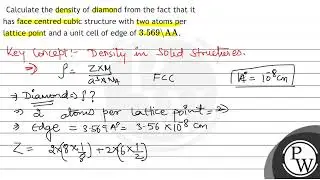 Calculate the density of diamond from the fact that it
has face centred cubic structure with two atoms per
lattice point and a unit cell of edge of 3.569\AA.
Key Concept:- Density in Solid Structures.
⇒ ρ = Z×M / a³×NA FCC 1A° = 10⁻⁸cm
→ Diamond = ρ?
→ 2 atoms per lattice point =
→ edge = 3.569A° = 3.56×10⁻⁸cm
Z = 2×(8×1/8) + 2×(6×1/2)
PW